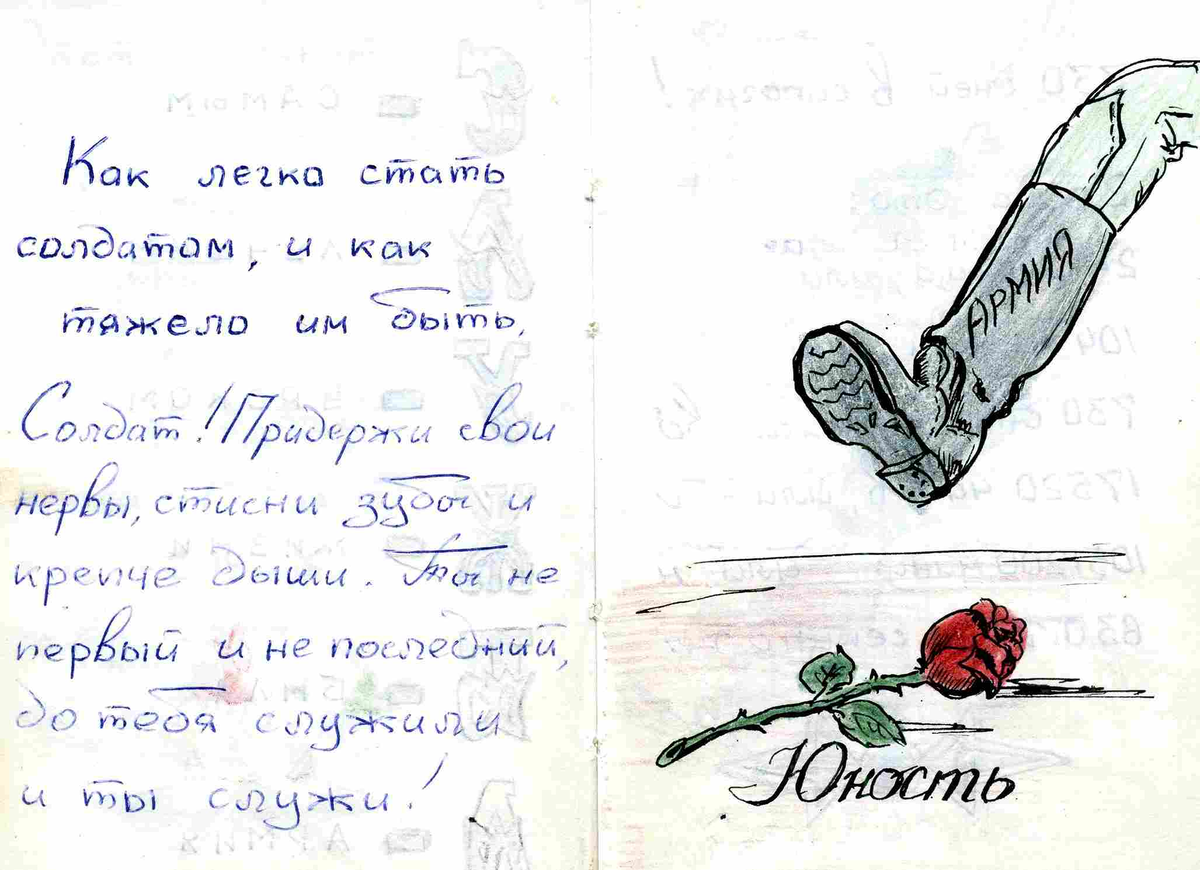 Как легко стать
солдатом, и как
тяжело им быть,
Солдат! Придержи свои
нервы, стисни зубы и
крепче дыши. Ты не
первый и не последний,
до тебя служили
и ты служи!
АРМИЯ
Юность